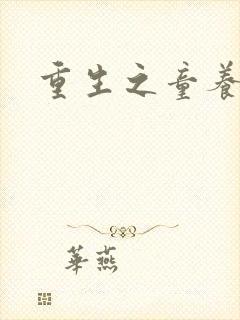 重生之童養
華燕